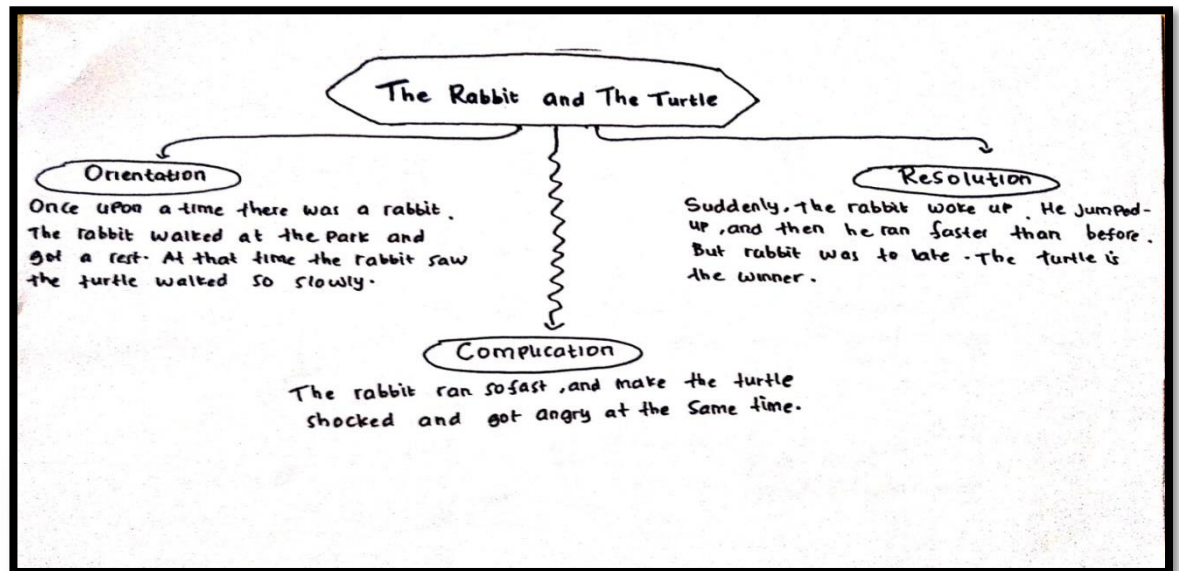 The Rabbit and The Turtle
Orientation
Once upon a time there was a rabbit.
The rabbit walked at the Park and
got a rest. At that time the rabbit saw
the turtle walked so slowly.
Complication
The rabbit ran so fast, and make the turtle
shocked and got angry at the same time.
Resolution
Suddenly, The rabbit woke up. He Jumped-
up, and then he ran faster than before.
But rabbit was to late. The turtle is
the winner.